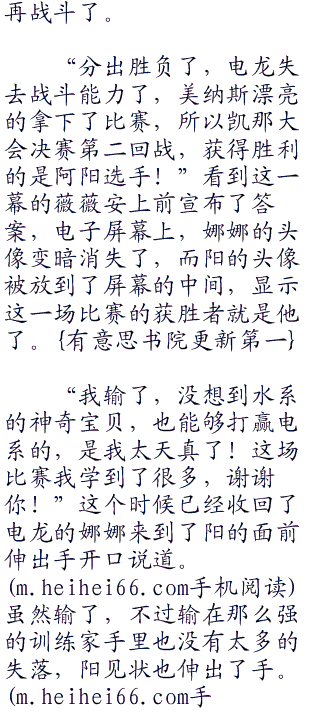 再战斗了。
“分出胜负了，电龙失
去战斗能力了，美纳斯漂亮
的拿下了比赛，所以凯那大
会决赛第二回战，获得胜利
的是阿阳选手！”看到这一
幕的薇薇安上前宣布了答
案，电子屏幕上，娜娜的头
像变暗消失了，而阳的头像
被放到了屏幕的中间，显示
这一场比赛的获胜者就是他
了。{有意思书院更新第一}
“我输了，没想到水系
的神奇宝贝，也能够打赢电
系的，是我太天真了！这场
比赛我学到了很多，谢谢
你！”这个时候已经收回了
电龙的娜娜来到了阳的面前
伸出手开口说道。
(m.heihei66.com手机阅读)
虽然输了，不过输在那么强
的训练家手里也没有太多的
失落，阳见状也伸出了手。
(m.heihei66.com手